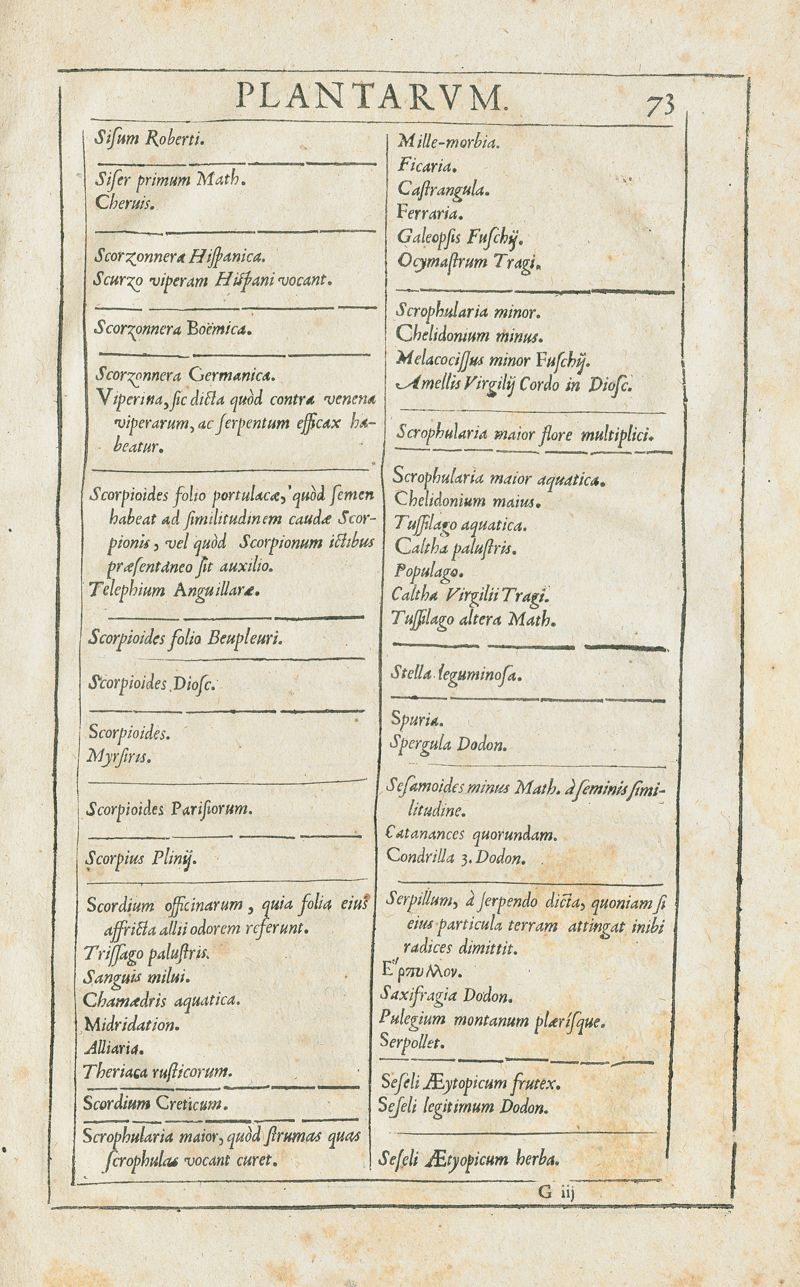 PLANTARVM.
73
Siſum Roberti.
Siſer primum Math.
Cheruis.
Scorzonnera Hiſpanica.
Scurzo viperam Hiſpani vocant.
Scorzonnera Boëmica.
Scorzonnera Germanica.
Viperina, ſic dicta quòd contra venena
viperarum, ac ſerpentum efficax ha-
beatur.
Scorpioides folio portulacæ, quòd ſemen
habeat ad ſimilitudinem caudæ Scor-
pionis, vel quòd Scorpionum ictibus
præſentáneo ſit auxilio.
Telephium Anguillaræ.
Scorpioides folio Beupleuri.
Scorpioides Dioſc.
Scorpioides.
Myrſiris.
Scorpioides Pariſiorum.
Scorpius Plinij.
Scordium officinarum, quia folia eius
affricta allii odorem referunt.
Triſſago paluſtris.
Sanguis milui.
Chamædris aquatica.
Midridation.
Alliaria.
Theriaca ruſticorum.
Scordium Creticum.
Scrophularia maior, quòd ſtrumas quas
ſcrophulas vocant curet.
Mille-morbia.
Ficaria.
Caſtrangula.
Ferraria.
Galeopſis Fuſchij.
Ocymaſtrum Tragi.
Scrophularia minor.
Chelidonium minus.
Melacociſſus minor Fuſchij.
Amellis Virgilij Cordo in Dioſc.
Scrophularia maior flore multiplici.
Scrophularia maior aquatica.
Chelidonium maius.
Tuſſilago aquatica.
Caltha paluſtris.
Populago.
Caltha Virgilii Tragi.
Tuſſilago altera Math.
Stella leguminoſa.
Spuria.
Spergula Dodon.
Seſamoides minus Math. à ſeminis ſimi-
litudine.
Catanances quorundam.
Condrilla 3. Dodon.
Serpillum, à ſerpendo dicta, quoniam ſi
eius particula terram attingat inibi
radices dimittit.
Ἕρπυλλον.
Saxifragia Dodon.
Pulegium montanum plæriſque.
Serpollet.
Seſeli Æytopicum frutex.
Seſeli legitimum Dodon.
Seſeli Ætyopicum herba.
G iij